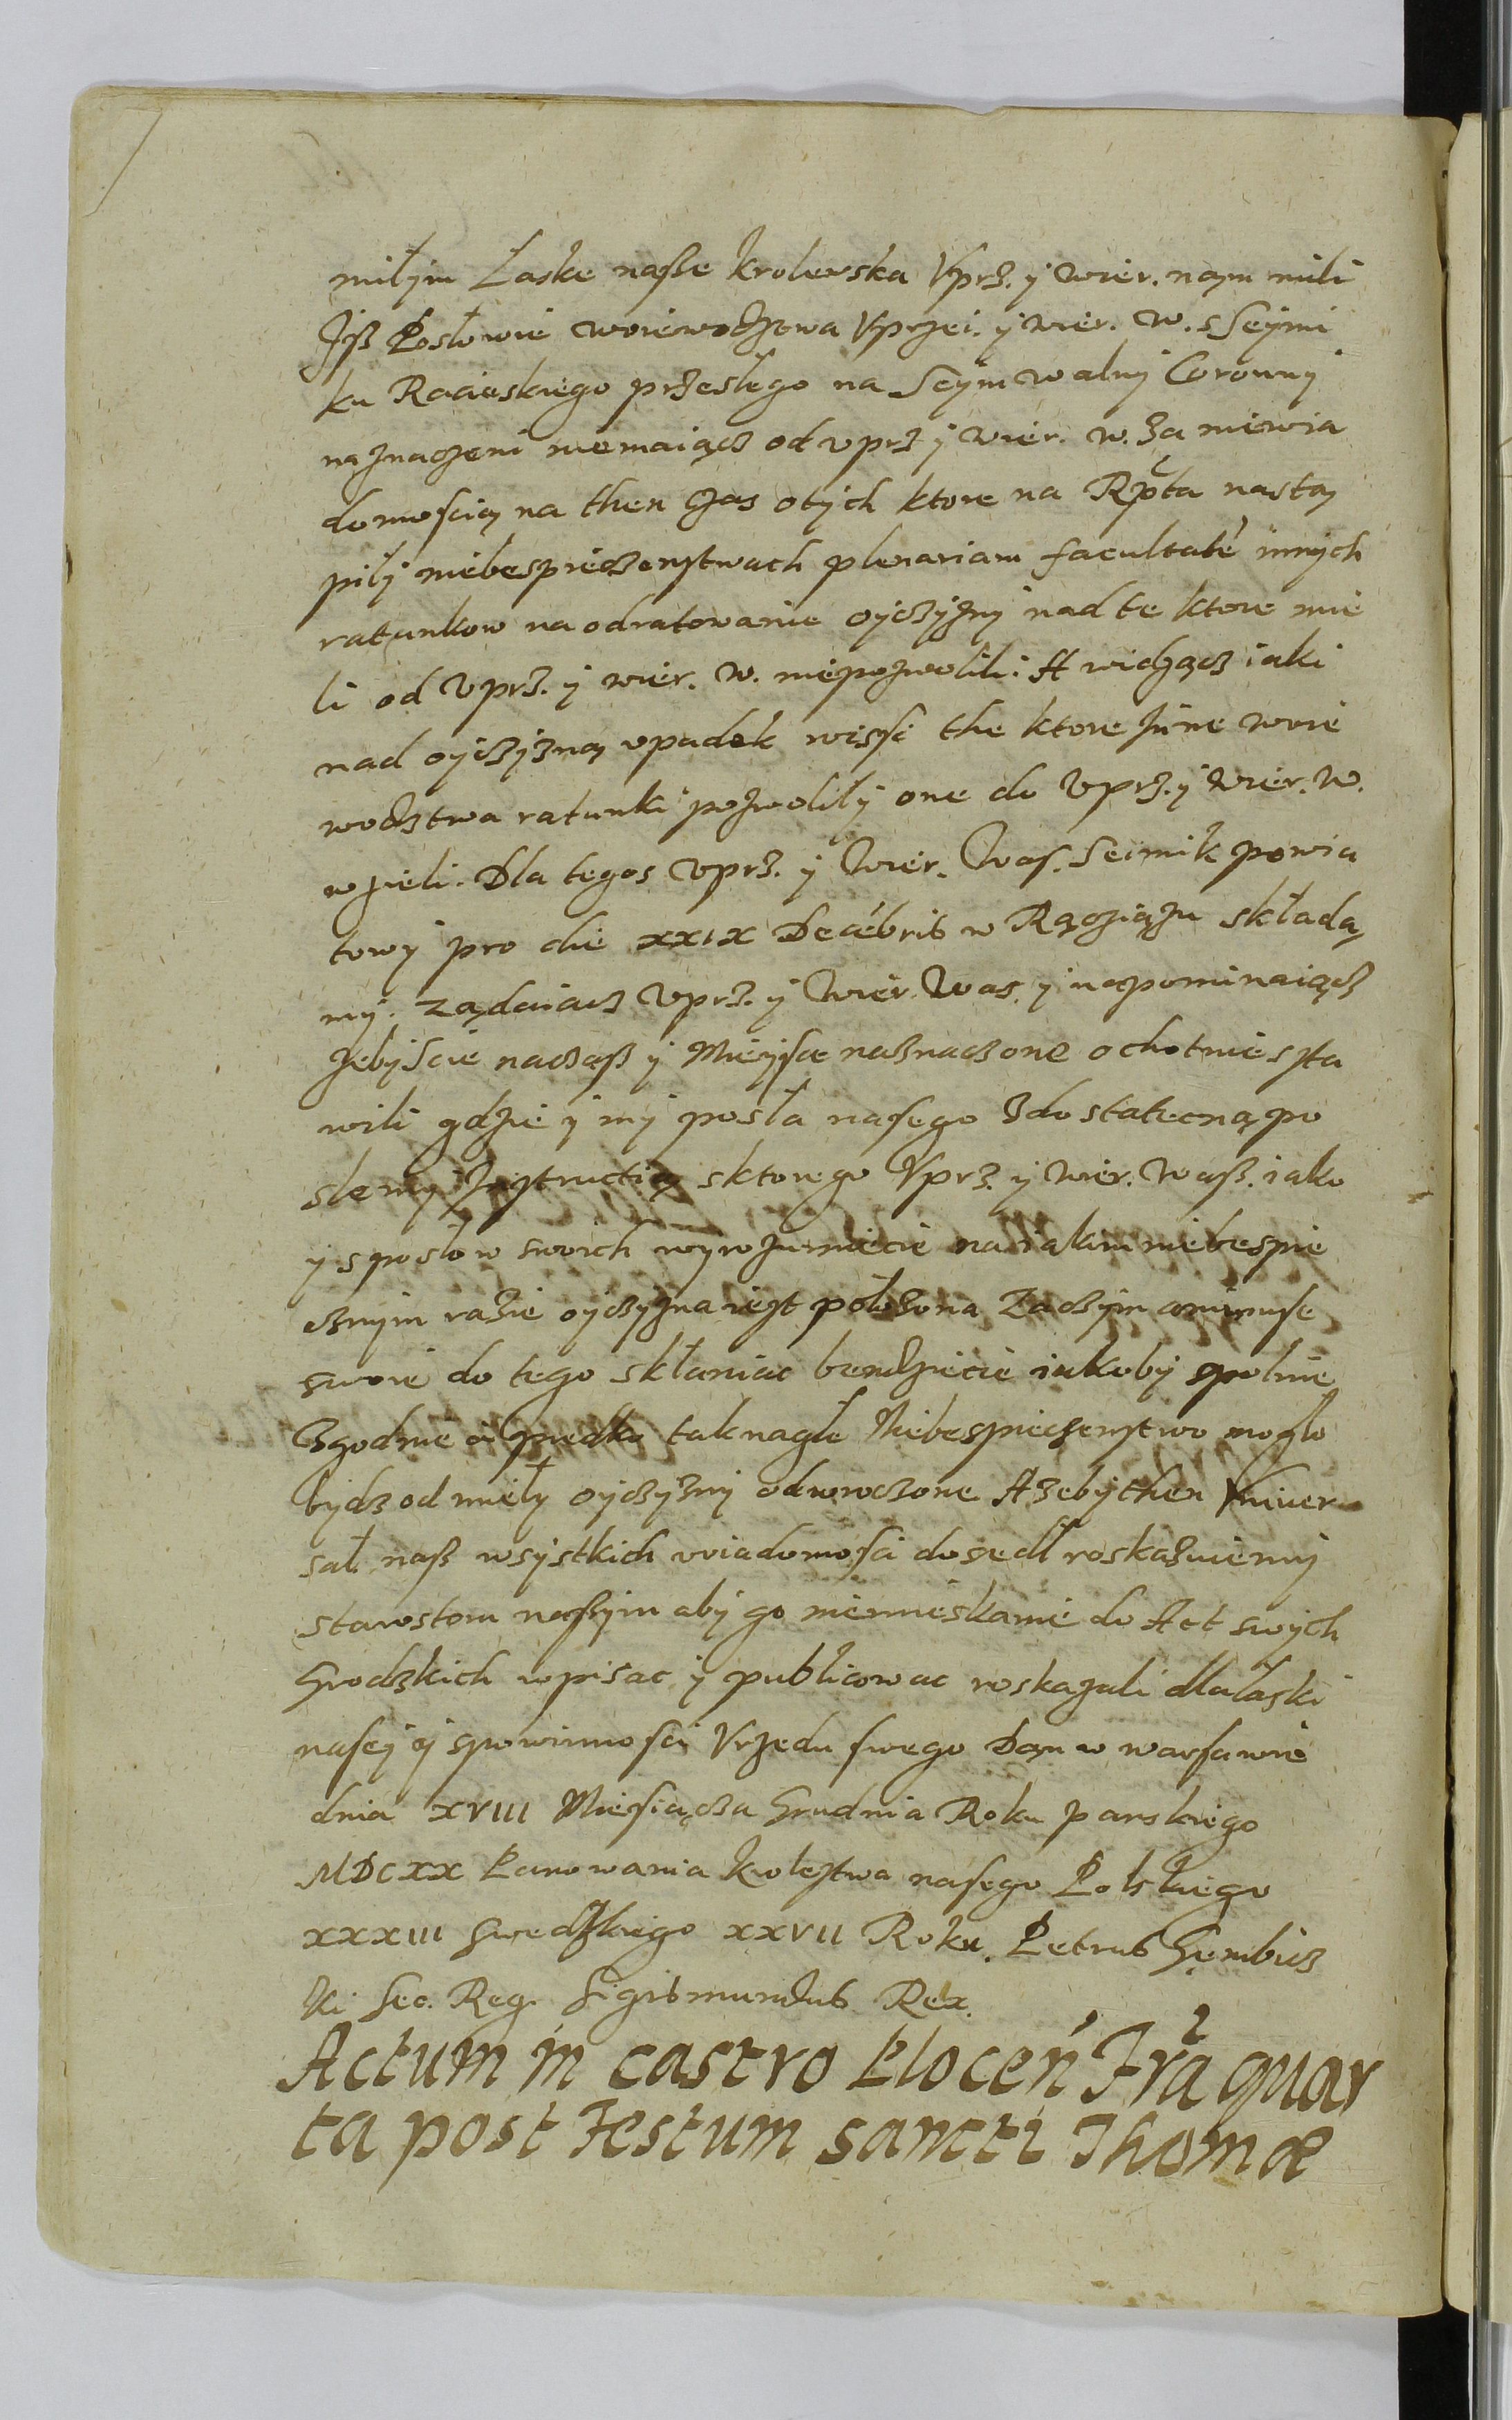 miłÿm Łaske nasße krolewska Vprz. ÿ wier. nąm mili
Jß Posłowie woiewodztwa Vprzei. ÿ wier. w. s Seÿmi
ku Raciąskiego przesłego na Seÿm walnÿ Coronnÿ
naznaczeni niemaiącz od vprz ÿ wier. w. za niewia
domoscią na then czas otÿch ktore na Rpta nastą
pilÿ niebespieczenstwach plenariam facultatē innych
ratunkow na odratowanie oÿczÿznÿ nad te ktore mie
li od Vprz. ÿ wier. w. niepozwolili. A widząsz iaki
nad oÿczÿzną vpadek wisßi the ktore Jnne woie
wodztwa ratunki pozwolilÿ one do Vprz. ÿ wier. w.
wzieli. Dla tegos Vprz. ÿ Wier. Was. Seimik powia
towÿ pro die xxix Decēbris w Rącziązu składą
mÿ. ządaiacz Vprz. ÿ Wier. Was. ÿ napominaiącz
zebÿscie naczaß ÿ Mieÿsce naznaczone ochotnie sta
wili gdzie ÿ mÿ posła nasego zdostatecną po
slemÿ Jnstructią sktorego Vprz. ÿ wier. Waß. iako
ÿ sposłow swoich wyrozumiecie na iakim niebespie
cznÿm razie oÿczÿzna iest położona Zaczÿm animuse
swoie do tego skłaniac bendziecie iakobÿ spolnie
Zgodnie a prędko tak nagłe Niebespieczenstwo mogło
bÿdz od miełÿ oÿczÿznÿ odwroczone Azebÿ then Vniuer
sał naß wsÿstkich wiadomosci dosedł roskazuiemÿ
starostom naßÿm abÿ go niemieskanie do Act swÿch
Grodzkich wpisac ÿ publicowac roskazali dla łaski
naseÿ ÿ spowinnosci Vrzedu swego Dan w warsawie
dnia XVIII Miesiącza Grudnia Roku panskiego
MDCXX Panowania krolestwa nasego Polskiego
XXXIII Swedzkiego XXVII Roku. Petrus Gembicz
ki Sec. Reg. Sigismundus Rex.
Actum in castro Plocen̄ Fr̃a quar
ta post Festum sancti Thomæ